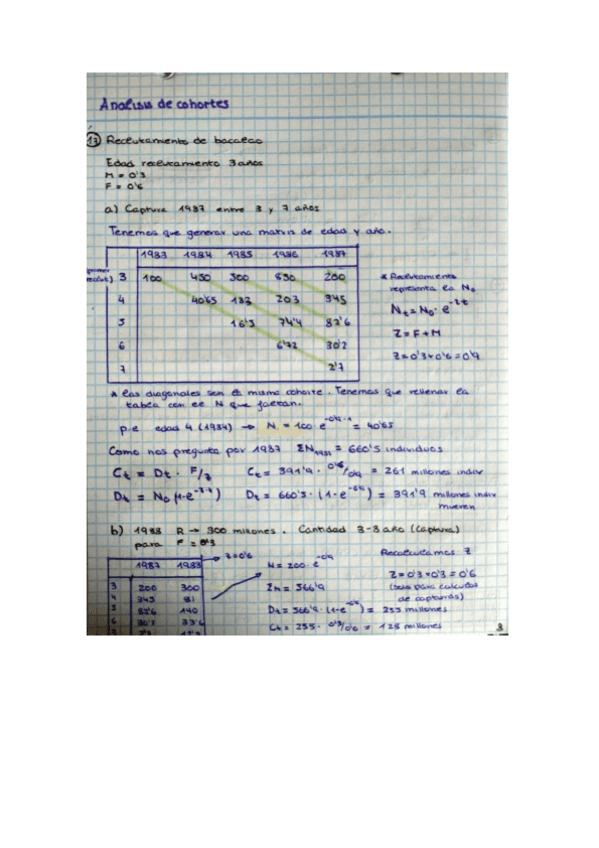 Analisis de cohortes
13 Reclutamiento de bacalao
Edad reclutamiento 3 años
M = 0'3
F = 0'6
a) Captura 1987 entre 3 y 7 años
Tenemos que generar una matriz de edad y año.
1983 1984 1985 1986 1987
3 100 450 500 850 200
4 40'65 183 203 345
5 16'5 74'4 82'6
6 6'72 30'2
7 2'7
* Reclutamiento
representa la N₀
Nt = N₀ · e^-Zt
Z = F + M
Z = 0'3 + 0'6 = 0'9
* las diagonales son la misma cohorte. Tenemos que rellenar la
tabla con el N que faltan.
p.e edad 4 (1984) → N = 100 · e^-0'9·1 = 40'65
Como nos pregunta por 1987 ΣN1987 = 660'5 individuos
Ct = Dt · F/Z Ct = 391'9 · 0'6/0'9 = 261 millones indiv
Dt = N₀ (1-e^-Zt) Dt = 660'5 · (1-e^-0'9) = 391'9 millones indiv
mueren
b) 1988 R → 300 millones. Cantidad 3-8 año (captura)
para F = 0'3
1987 1988
3 200 300
4 345 81
5 82'6 140
6 30'2 33'6
→ Z=0'6
N = 200 · e^-0'9
ΣN = 566'9
Dt = 566'9 · (1-e^-0'6) = 255 millones
Ct = 255 · 0'3/0'6 = 128 millones
Recalculamos Z
Z = 0'3 + 0'3 = 0'6
(solo para calculos
de capturas)
8